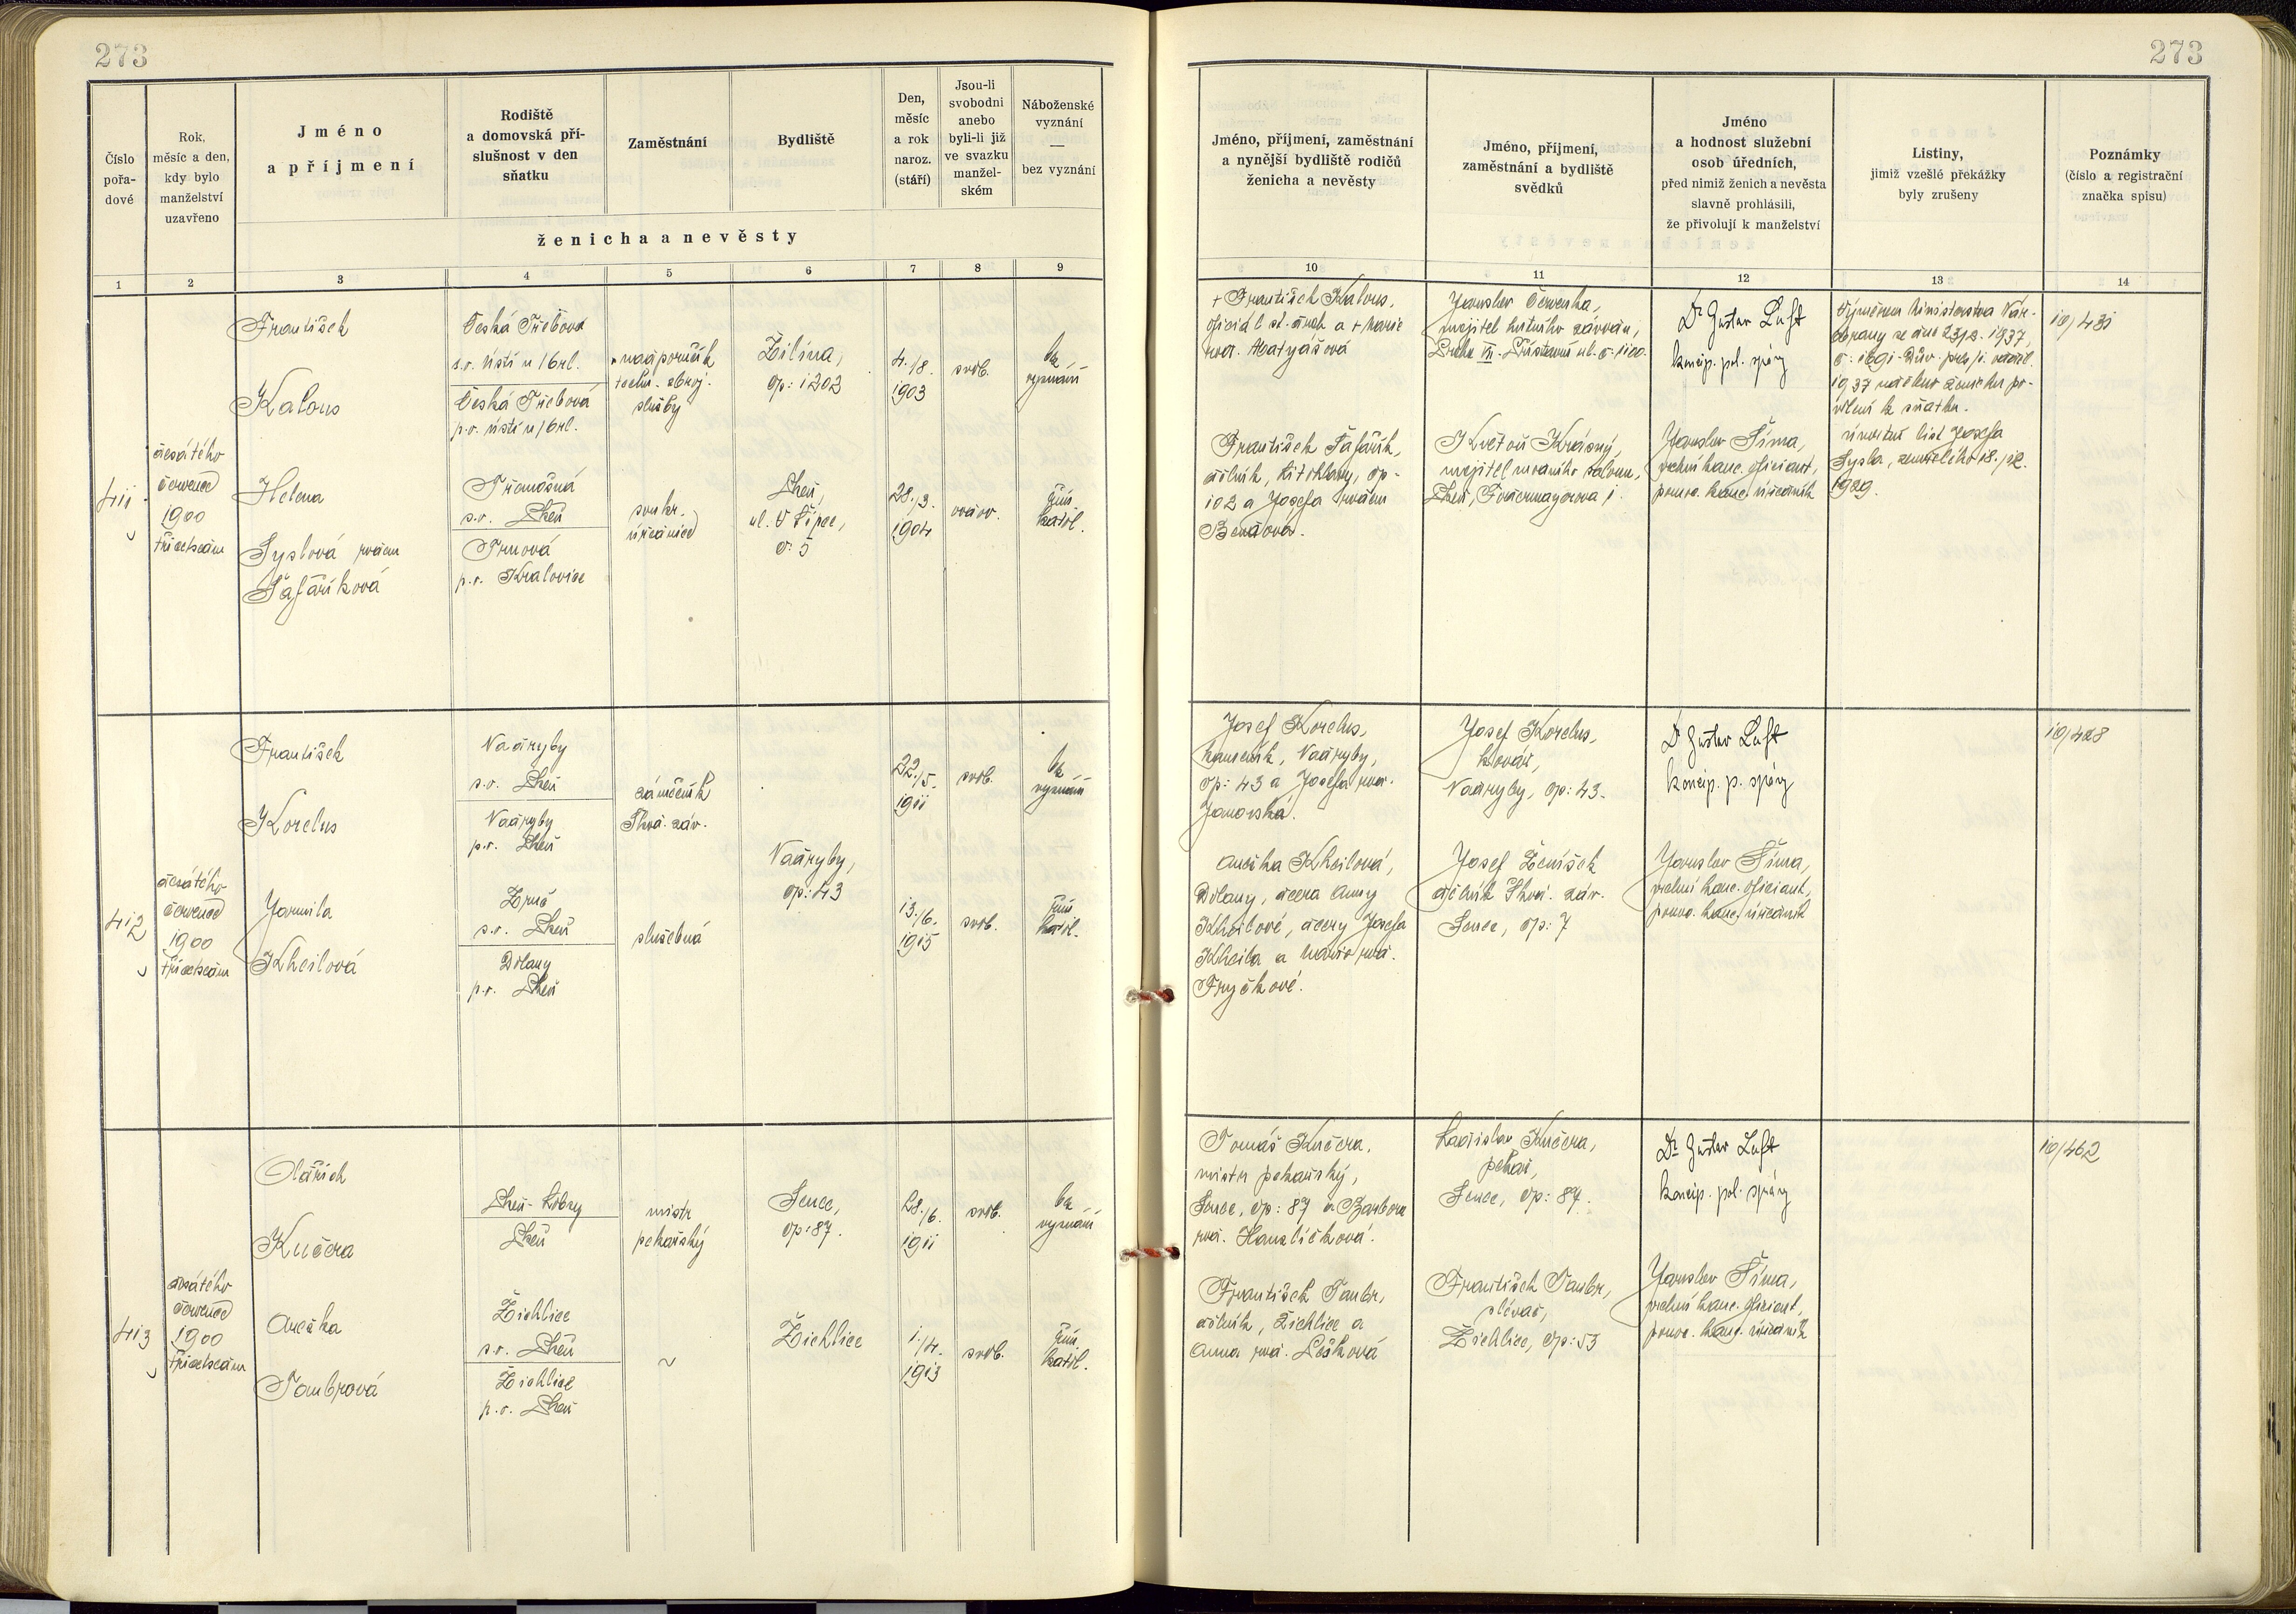 273
273
Číslo
pořa-
dové
Rok,
měsíc a den,
kdy bylo
manželství
uzavřeno
Jméno
a příjmení
Rodiště
a domovská pří-
slušnost v den
sňatku
Zaměstnání
Bydliště
Den,
měsíc
a rok
naroz.
(stáří)
Jsou-li
svobodni
anebo
byli-li již
ve svazku
manžel-
ském
Náboženské
vyznání
—
bez vyznání
ženicha a nevěsty
Jméno, příjmení, zaměstnání
a nynější bydliště rodičů
ženicha a nevěsty
Jméno, příjmení,
zaměstnání a bydliště
svědků
Jméno
a hodnost služební
osob úředních,
před nimiž ženich a nevěsta
slavně prohlásili,
že přivolují k manželství
Listiny,
jimiž vzešlé překážky
byly zrušeny
Poznámky
(číslo a registrační
značka spisu)
1 2 3 4 5 6 7 8 9 10 11 12 13 14
411
desátého
července
1900
třicetsedm
František
Kalous
Česká Třebova
s.o. Ústí n/Orl.
Česká Třebová
p.o. Ústí n/Orl.
nadporučík
techn. zbroj.
služby
Žilina,
čp: 1202
4./8.
1903
svob.
bez
vyznání
Helena
Syslová rozen
Šafaříková
Třemošná
s.o. Plzeň
Trnová
p.o. Kralovice
soukr.
úřednice
Plzeň,
ul. U Lípce,
č: 5
28./3.
1904
ovdov.
řím.
katol.
+ František Kalous,
oficiál st. drah a + Marie
roz. Matyášová
František Šafařík,
dělník, Litohlavy, čp-
102 a Josefa rozen
Bendová.
Jaroslav Červenka,
majitel hutního závodu,
Praha VII. Přístavní ul. č: 1100.
Květoň Krásný,
majitel modního salonu,
Plzeň, Fodermayerova 1.
Dr Gustav Luft
koncip. pol. správy
Jaroslav Šíma,
vrchní kanc. oficiant,
pověř. kanc. úředník
Výměrem Ministerstva Nár.
obrany ze dne 23/2. 1937,
č: 1691-Dův. pres/1. odděl.
1937 uděleno ženichu po-
volení k sňatku.
úmrtní list Josefa
Sysla, zemřelého 18./12.
1929.
10/431
412
desátého
července
1900
třicetsedm
František
Korelus
Nadryby
s.o. Plzeň
Nadryby
p.o. Plzeň
zámečník
Škod. záv.
Nadryby,
čp: 43
22./5.
1911
svob.
bez
vyznání
Jarmila
Kheilová
Zruč
s.o. Plzeň
Dolany
p.o. Plzeň
služebná
13./6.
1915
svob.
řím
katol.
Josef Korelus,
kameník, Nadryby,
čp: 43 a Josefa roz.
Janovská.
Anežka Kheilová,
Dolany, dcera Anny
Kheilové, dcery Josefa
Kheila a Marie roz.
Fryčkové.
Josef Korelus,
kovář,
Nadryby, čp: 43.
Josef Ženíšek
dělník Škod. záv.
Senec, čp: 7
Dr Gustav Luft
koncip. p. správy
Jaroslav Šíma,
vrchní kanc. oficiant,
pověř. kanc. úředník
10/428
413
desátého
července
1900
třicetsedm
Oldřich
Kučera
Plzeň-Lobzy
Plzeň
mistr
pekařský
Senec,
čp: 87.
28./6.
1911
svob.
bez
vyznání
Anežka
Taubrová
Žichlice
s.o. Plzeň
Žichlice
p.o. Plzeň
~
Žichlice
1./4.
1913
svob.
řím.
katol.
Tomáš Kučera,
mistr pekařský,
Senec, čp: 87 a Barbora
roz. Hanzlíčková.
František Taubr,
dělník, Žichlice a
Anna roz. Lišková
Ladislav Kučera,
pekař,
Senec, čp: 87.
František Taubr,
slévač,
Žichlice, čp: 53
Dr Gustav Luft
koncip. pol. správy
Jaroslav Šíma,
vrchní kanc. oficiant,
pověř. kanc. úředník
10/462